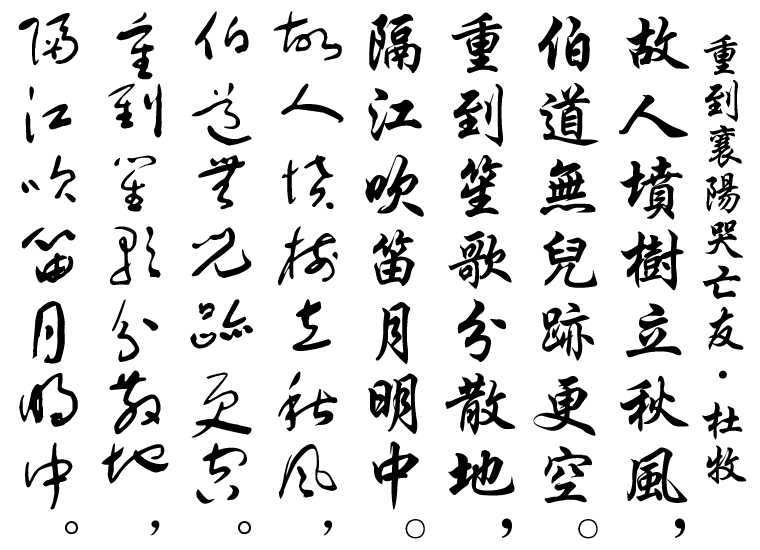 重到襄陽哭亡友·杜牧
故人墳樹立秋風，
伯道無兒跡更空。
重到笙歌分散地，
隔江吹笛月明中。
故人墳樹立秋風，
伯道無兒跡更空。
重到笙歌分散地，
隔江吹笛月明中。